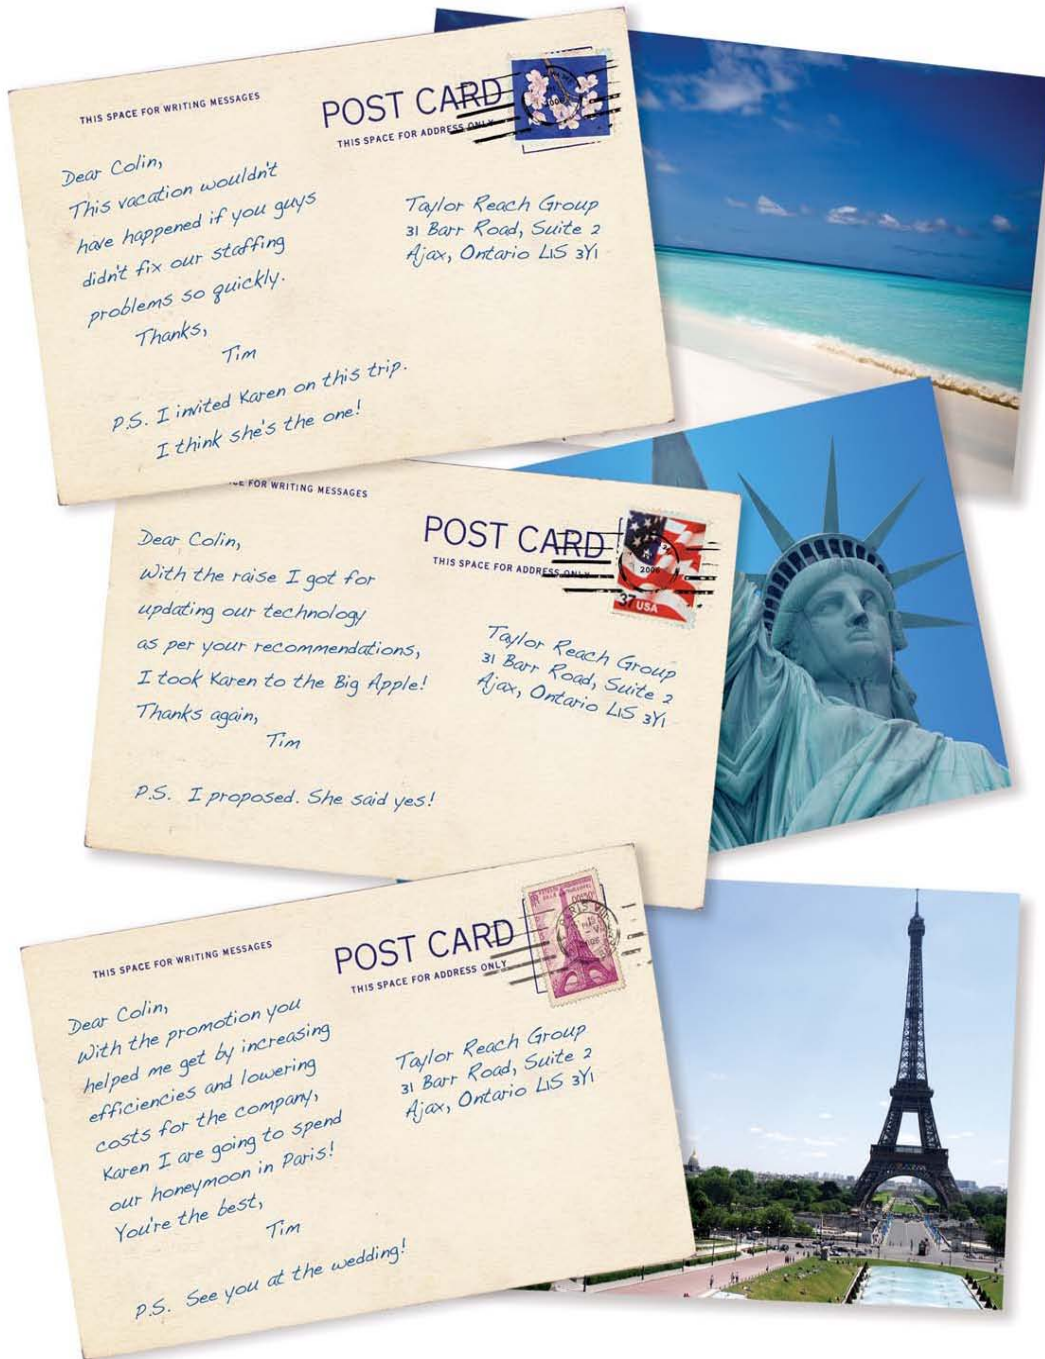 THIS SPACE FOR WRITING MESSAGES
POST CARD
THIS SPACE FOR ADDRESS ONLY
Dear Colin,
This vacation wouldn't
have happened if you guys
didn't fix our staffing
problems so quickly.
Thanks,
Tim
P.S. I invited Karen on this trip.
I think she's the one!
Taylor Reach Group
31 Barr Road, Suite 2
Ajax, Ontario L1S 3Y1
FOR WRITING MESSAGES
POST CARD
THIS SPACE FOR ADDRESS ONLY
2006
37 USA
Dear Colin,
With the raise I got for
updating our technology
as per your recommendations,
I took Karen to the Big Apple!
Thanks again,
Tim
P.S. I proposed. She said yes!
Taylor Reach Group
31 Barr Road, Suite 2
Ajax, Ontario L1S 3Y1
THIS SPACE FOR WRITING MESSAGES
POST CARD
THIS SPACE FOR ADDRESS ONLY
Dear Colin,
With the promotion you
helped me get by increasing
efficiencies and lowering
costs for the company,
Karen I are going to spend
our honeymoon in Paris!
You're the best,
Tim
P.S. See you at the wedding!
Taylor Reach Group
31 Barr Road, Suite 2
Ajax, Ontario L1S 3Y1